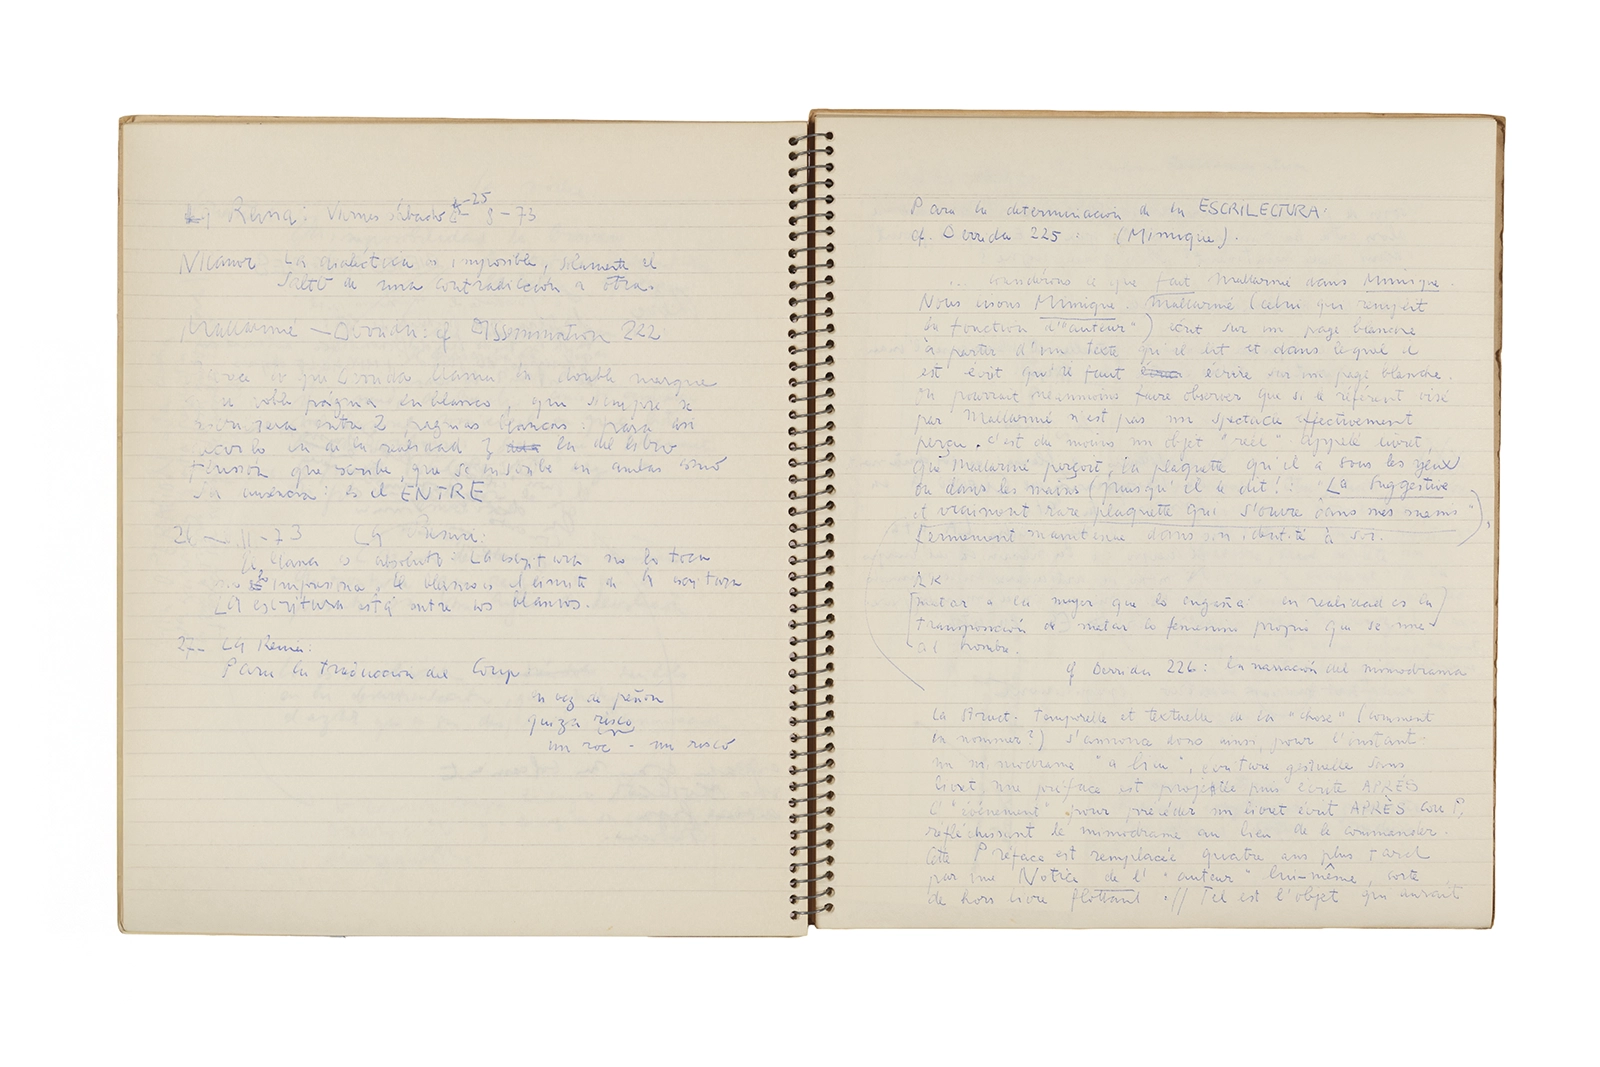 Reina: Viernes sábado 25 8-73
Nicanor La dialéctica es imposible, solamente el
salto de una contradicción a otra.
Mallarmé — Derrida: cf Dissemination 222
lo que Derrida llama la double marque
doble página en blanco, que siempre se
entre 2 páginas blancas: para así
la de la realidad y la del libro
tensión que escribe, que se inscribe en ambas como
su ausencia: es el ENTRE
26 — 11-73 La
es absoluto. La escritura no lo toca
lo impresiona, el blanco es el límite de la escritura
La escritura está entre los blancos.
27— La Reina:
Para la traducción del Coup
en vez de peñón
quizá risco
un roc - un risco
Para la determinación de la ESCRILECTURA:
cf. Derrida 225: (Mimique).
... considérons ce que fait Mallarmé dans Mimique.
Nous lisons Mimique. Mallarmé (celui qui remplit
la fonction d'"auteur") écrit sur un page blanche
à partir d'un texte qu'il lit et dans lequel il
est écrit qu'il faut écrire sur un page blanche.
On pourrait néanmoins faire observer que si le référent visé
par Mallarmé n'est pas un spectacle effectivement
perçu, c'est du moins un objet "réel" appelé livret,
que Mallarmé perçoit, la plaquette qu'il a sous les yeux
ou dans les mains (puisqu'il le dit!: "La suggestive
et vraiment rare plaquette qui s'ouvre dans mes mains"),
fermement maintenue dans son identité à soi.
matar a la mujer que lo engaña: en realidad es la
transposición de matar lo femenino propio que se
al hombre.
cf Derrida 226: la narración del mimodrama
La struct. temporelle et textuelle de la "chose" (comment
la nommer?) s'annonce donc ainsi, pour l'instant.
un mimodrame "a lieu", écriture gestuelle sans
livret, une préface est projetée puis écrite APRÈS
l'"événement" pour précéder un livret écrit APRÈS COUP,
réfléchissant le mimodrame au lieu de le commander.
Cette Préface est remplacée quatre ans plus tard
par une Notice de l'"auteur" lui-même, sorte
de hors livre flottant. // Tel est l'objet qui aurait